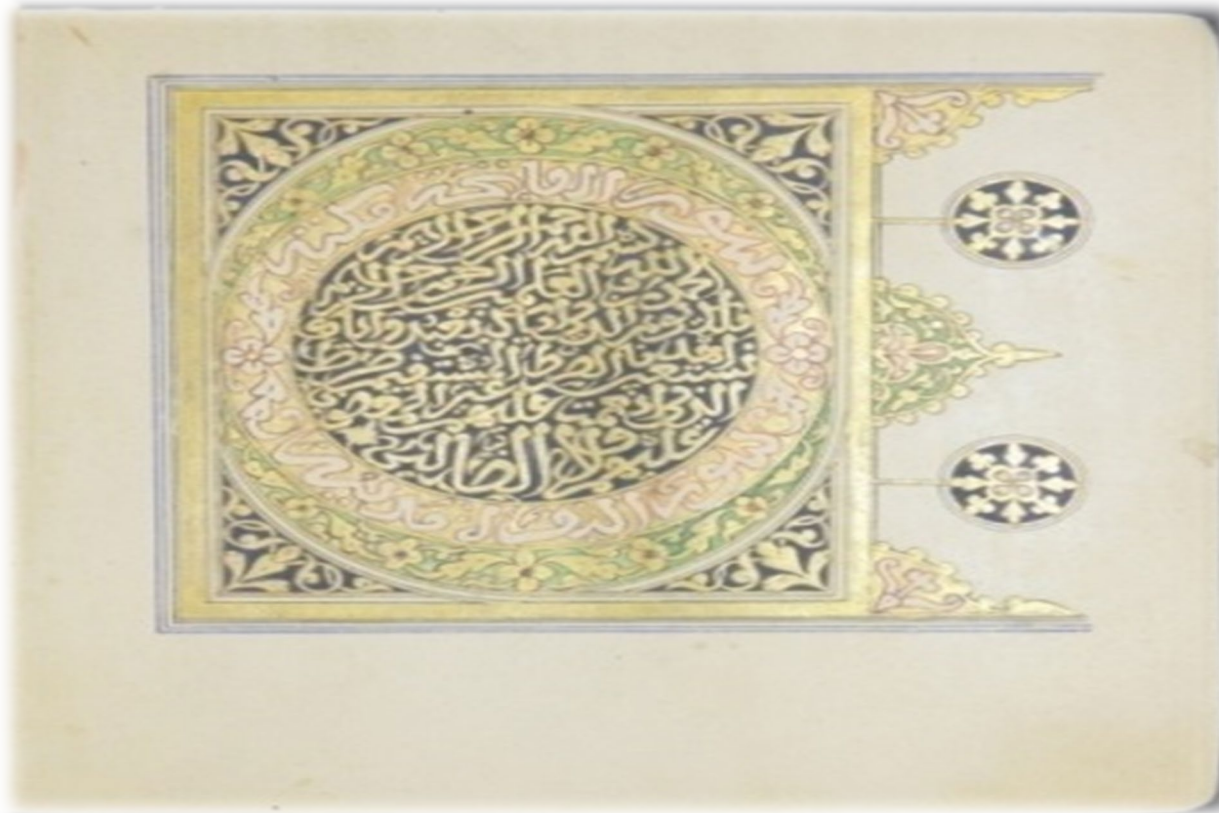 سورة الفاتحة مكية
بسم الله الرحمن الرحيم
الحمد لله رب العلمين الرحمن الرحيم
ملك يوم الدين اياك نعبد واياك
نستعين اهدنا الصرط المستقيم صرط
الذين انعمت عليهم غير المغضوب
عليهم ولا الضالين
سورة